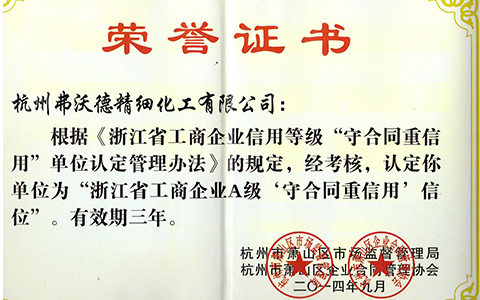 荣誉证书
杭州弗沃德精细化工有限公司：
根据《浙江省工商企业信用等级“守合同重信
用”单位认定管理办法》的规定，经考核，认定你
单位为“浙江省工商企业A级‘守合同重信用’信
位”。有效期三年。
杭州市萧山区市场监督管理局
杭州市萧山区企业合同管理协会
二〇一四年九月